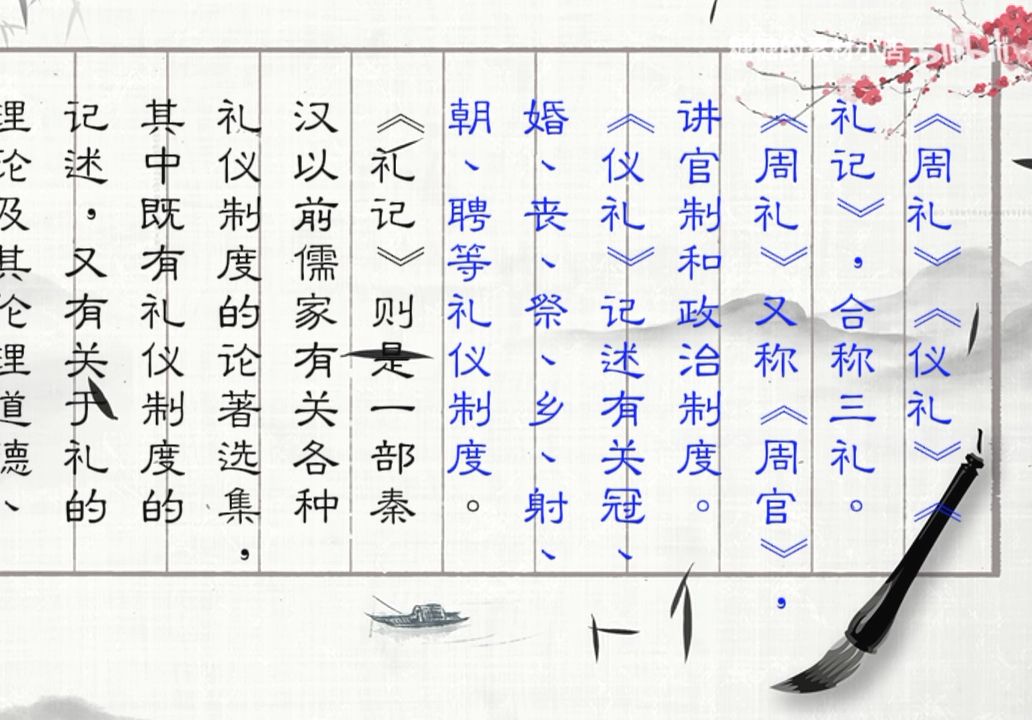 《周礼》《仪礼》《
礼记》，合称三礼。
《周礼》又称《周官》，
讲官制和政治制度。
《仪礼》记述有关冠、
婚、丧、祭、乡、射、
朝、聘等礼仪制度。
《礼记》则是一部秦
汉以前儒家有关各种
礼仪制度的论著选集，
其中既有礼仪制度的
记述，又有关于礼的
理论及其伦理道德、